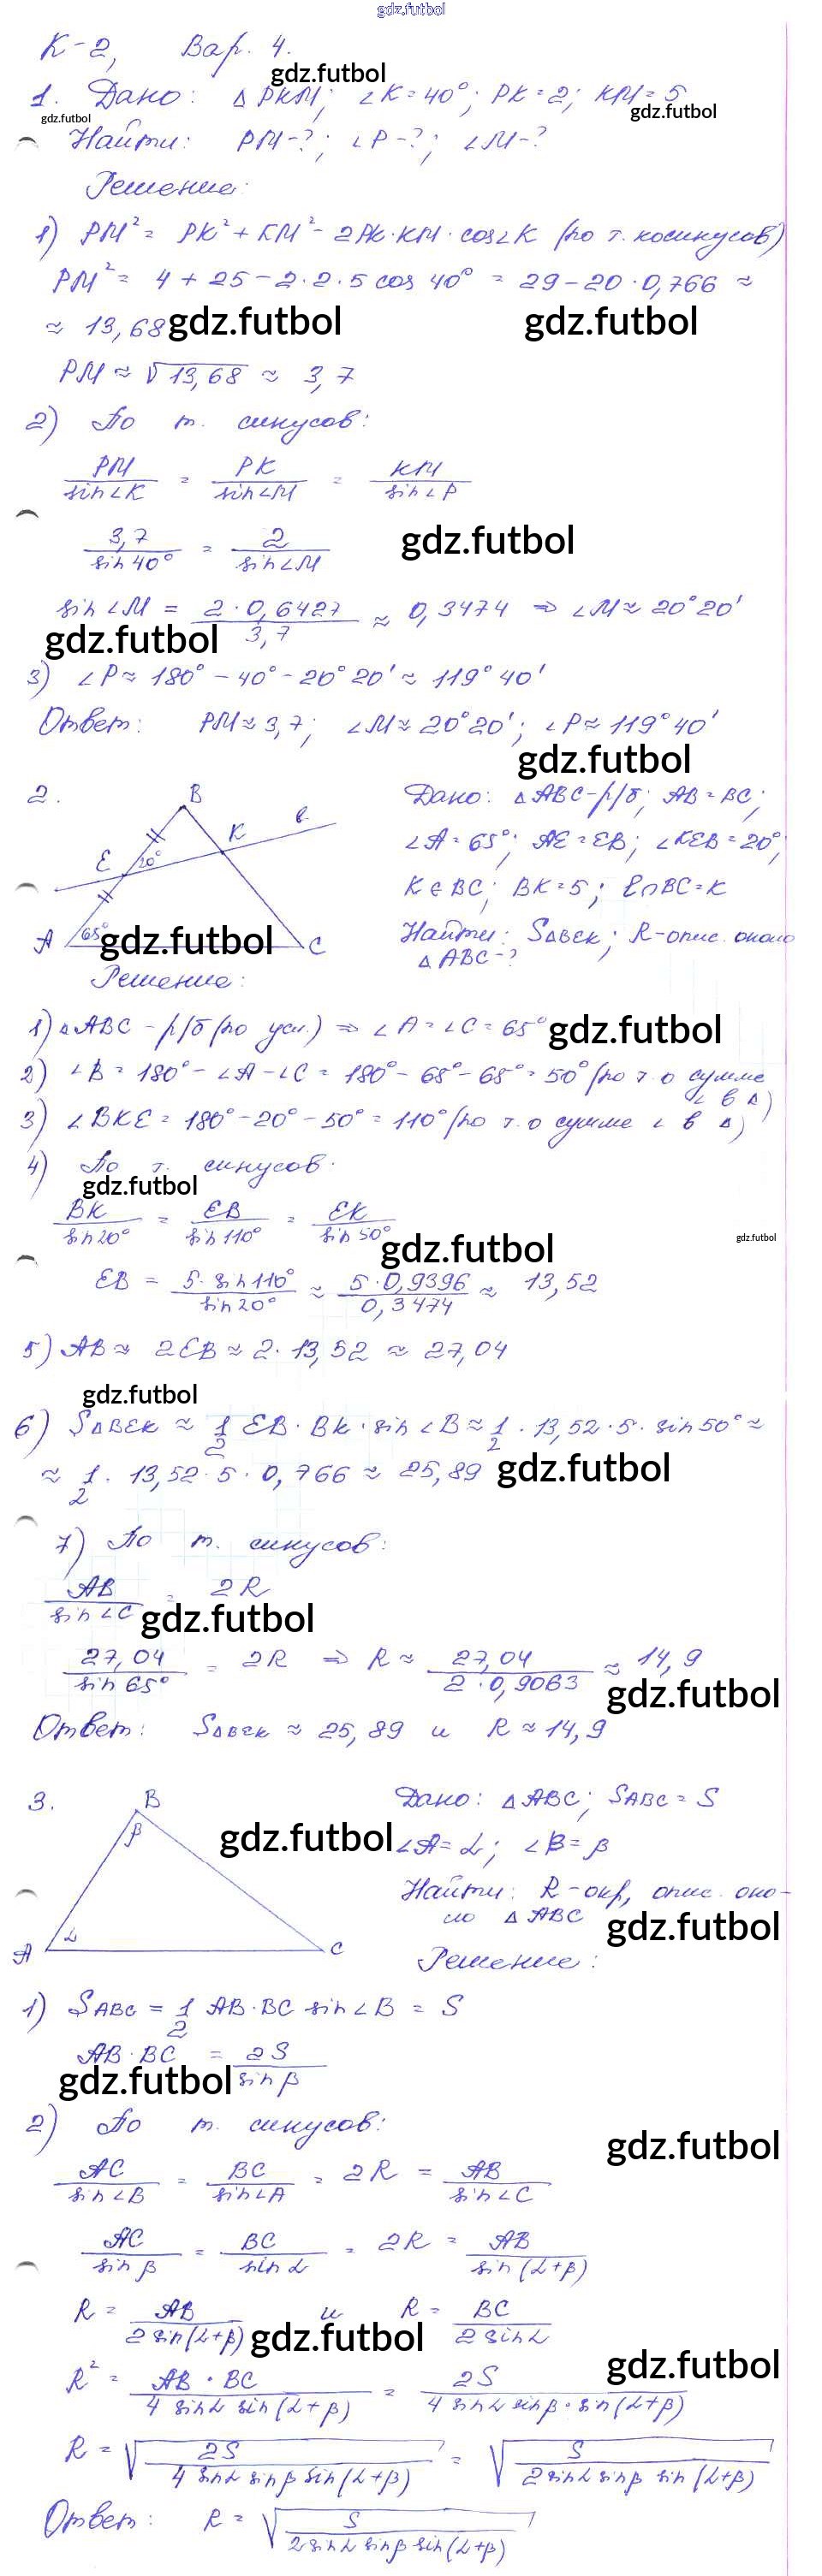 gdz.futbol
К-2, Вар. 4.
gdz.futbol
1. Дано: △PKM; ∠K=40°; PK=2; KM=5
gdz.futbol
gdz.futbol
Найти: PM-?; ∠P-?; ∠M-?
Решение:
1) PM² = PK² + KM² - 2PK·KM·cos∠K (по т. косинусов)
PM² = 4 + 25 - 2·2·5 cos 40° = 29 - 20·0,766 ≈
≈ 13,68
gdz.futbol gdz.futbol
PM ≈ √13,68 ≈ 3,7
2) По т. синусов:
PM/sin∠K = PK/sin∠M = KM/sin∠P
3,7/sin 40° = 2/sin∠M
gdz.futbol
sin∠M = 2·0,6427/3,7 ≈ 0,3474 ⇒ ∠M ≈ 20°20'
gdz.futbol
3) ∠P ≈ 180° - 40° - 20°20' ≈ 119°40'
Ответ: PM ≈ 3,7; ∠M ≈ 20°20'; ∠P ≈ 119°40'
gdz.futbol
2.
B
K
ℓ
E
20°
A
65°
C
gdz.futbol
Дано: △ABC-р/б; AB=BC;
∠A=65°; AE=EB; ∠KEB=20°;
K∈BC; BK=5; ℓ∩BC=K
Найти: S△BEK; R-опис. около
△ABC-?
Решение:
1) △ABC - р/б (по усл.) ⇒ ∠A=∠C=65°
gdz.futbol
2) ∠B = 180° - ∠A - ∠C = 180° - 65° - 65° = 50° (по т. о сумме
∠ в △)
3) ∠BKE = 180° - 20° - 50° = 110° (по т. о сумме ∠ в △)
4) По т. синусов:
gdz.futbol
BK/sin20° = EB/sin110° = EK/sin50°
gdz.futbol
gdz.futbol
EB = 5·sin110°/sin20° ≈ 5·0,9396/0,3474 ≈ 13,52
5) AB ≈ 2EB ≈ 2·13,52 ≈ 27,04
gdz.futbol
6) S△BEK ≈ 1/2 EB·BK·sin∠B ≈ 1/2·13,52·5·sin50° ≈
≈ 1/2·13,52·5·0,766 ≈ 25,89
gdz.futbol
7) По т. синусов:
AB/sin∠C = 2R
gdz.futbol
27,04/sin65° = 2R ⇒ R ≈ 27,04/2·0,9063 ≈ 14,9
gdz.futbol
Ответ: S△BEK ≈ 25,89 и R ≈ 14,9
3.
B
β
A
α
C
gdz.futbol
Дано: △ABC; SABC=S
∠A=α; ∠B=β
Найти: R-окр, опис. око-
ло △ABC
gdz.futbol
Решение:
1) SABC = 1/2 AB·BC sin∠B = S
AB·BC = 2S/sinβ
gdz.futbol
2) По т. синусов:
gdz.futbol
AC/sin∠B = BC/sin∠A = 2R = AB/sin∠C
AC/sinβ = BC/sinα = 2R = AB/sin(α+β)
R = AB/2sin(α+β) и R = BC/2sinα
gdz.futbol
gdz.futbol
R² = AB·BC/4 sinα sin(α+β) = 2S/4 sinα sinβ·sin(α+β)
R = √2S/4 sinα sinβ sin(α+β) = √S/2sinα sinβ sin(α+β)
Ответ: R = √S/2sinα sinβ sin(α+β)